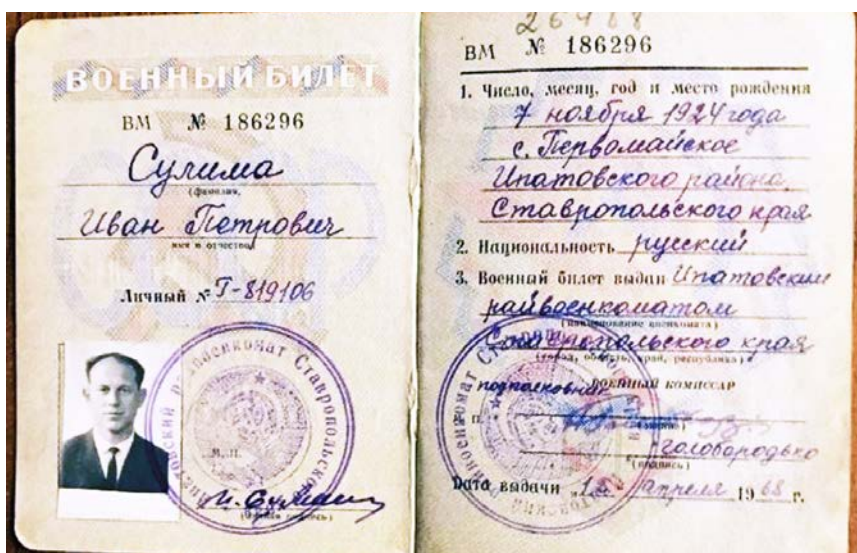 ВОЕННЫЙ БИЛЕТ
ВМ № 186296
Сулима
(фамилия,
Иван Петрович
имя и отчество)
Личный № Т-819106
М. П.
(личная подпись)
26468
ВМ № 186296
1. Число, месяц, год и место рождения
7 ноября 1924 года
с. Первомайское
Ипатовского района,
Ставропольского края
2. Национальность русский
3. Военный билет выдан Ипатовским
райвоенкоматом
(наименование военкомата)
Ставропольского края
(город, область, край, республика)
подполковник ВОЕННЫЙ КОМИССАР
Голобородько
(подпись)
Дата выдачи апреля 1968 г.